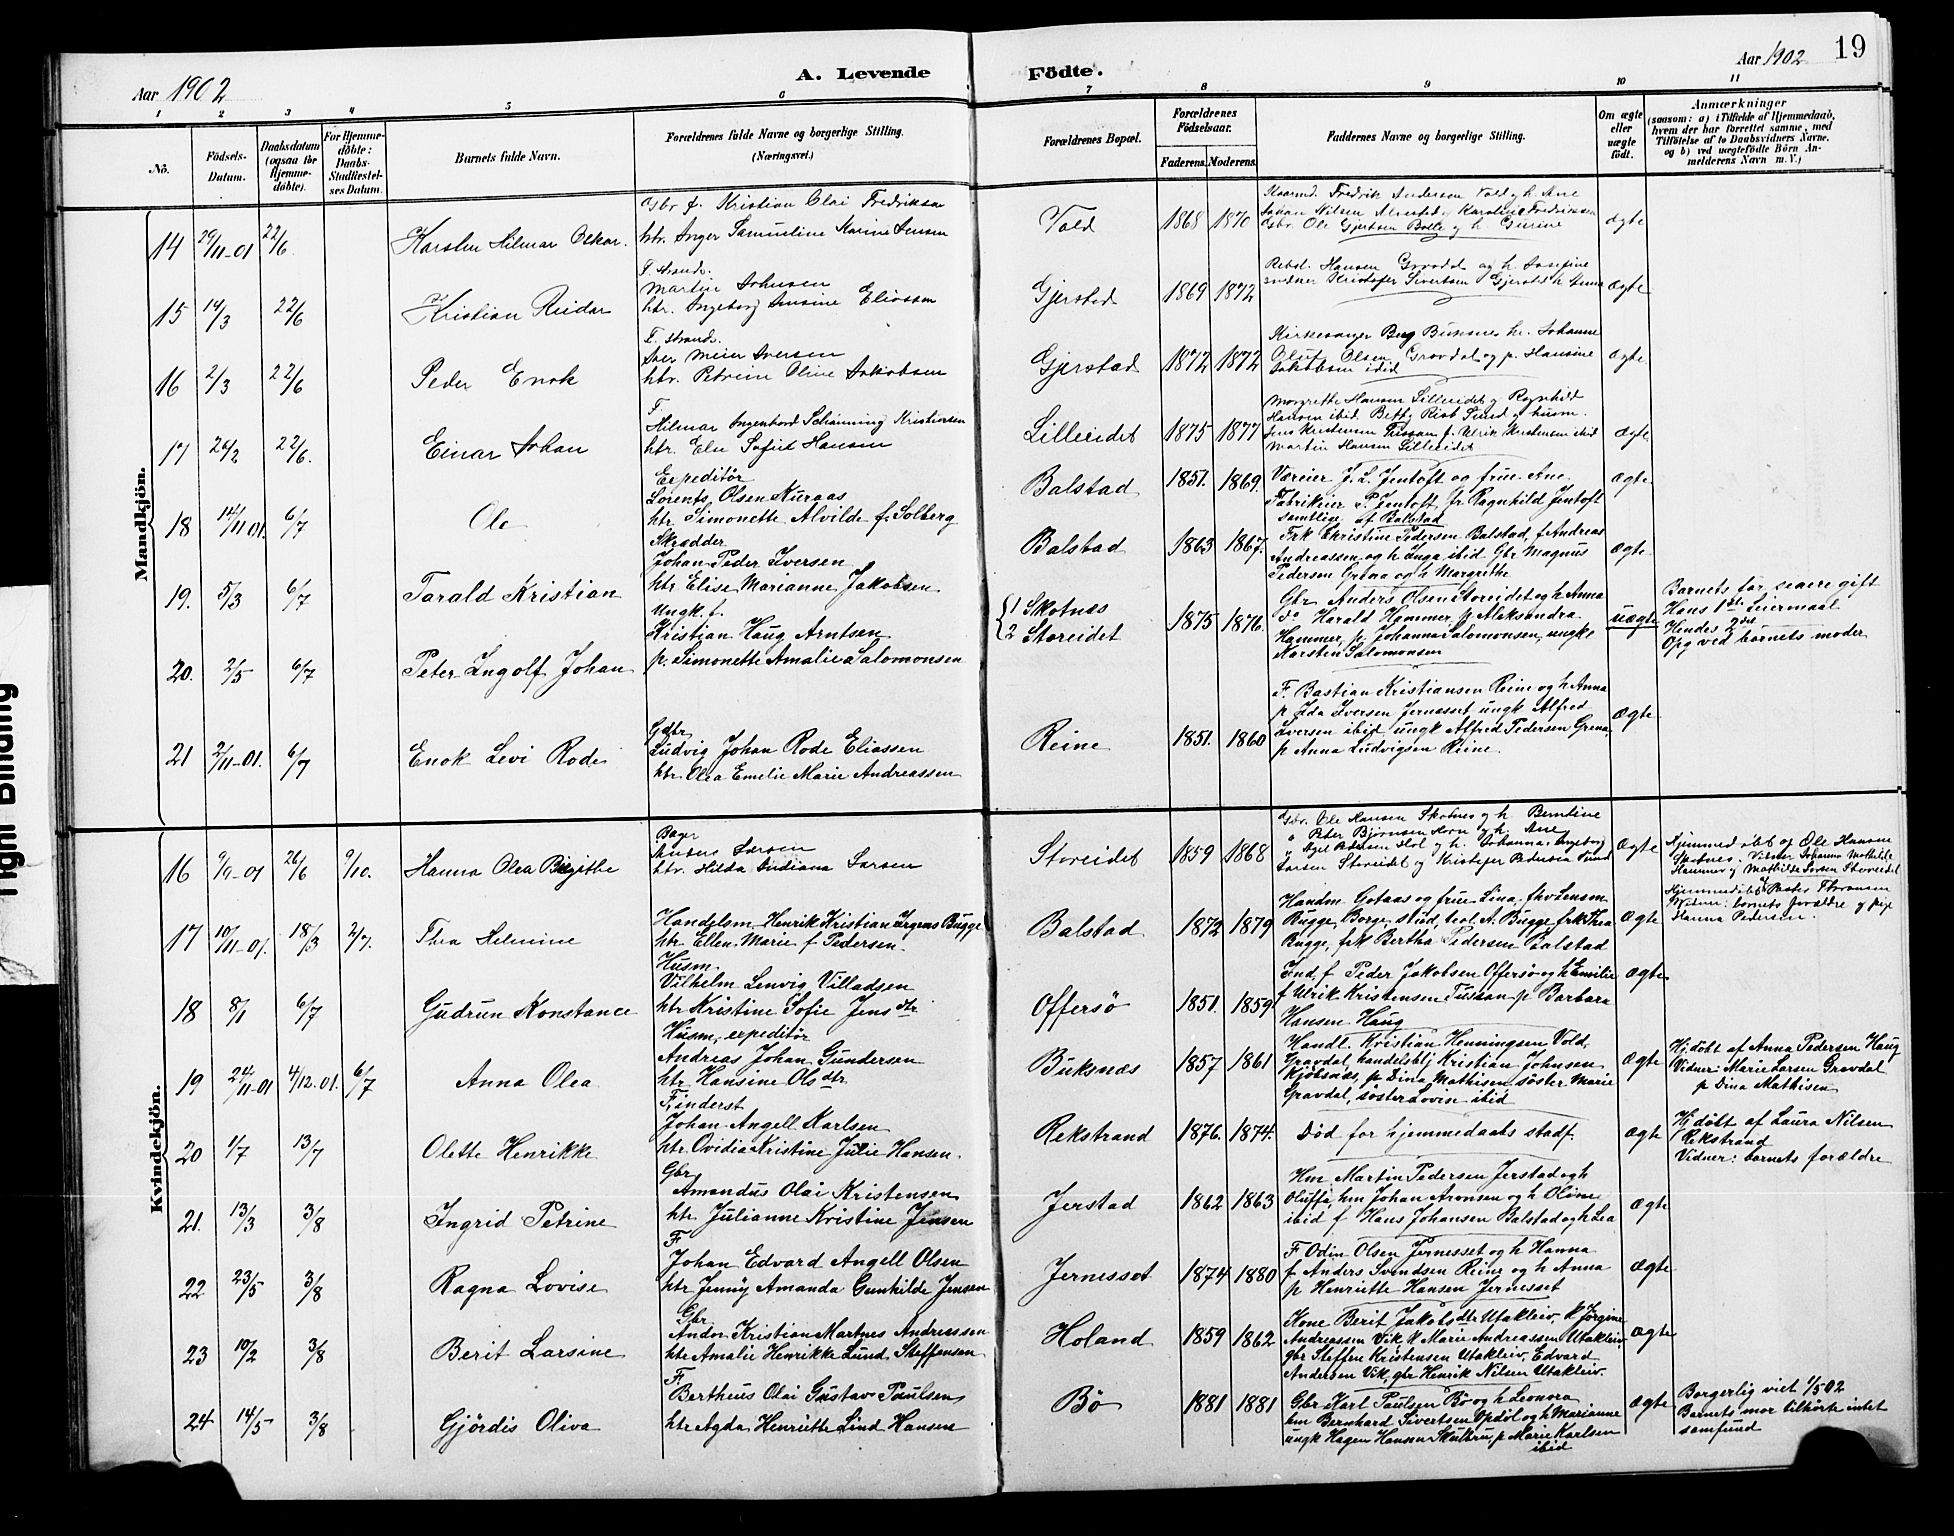 Aar 1902
A. Levende
Födte.
Aar 1902
19
1 2 3 4 5 6 7 8 9 10 11
No.
Födsels-
Datum.
Daabsdatum
(ogsaa for
Hjemme-
döbte).
For Hjemme-
döbte:
Daabs-
Stadfæstel-
ses Datum.
Barnets fulde Navn.
Forældrenes fulde Navne og borgerlige Stilling.
(Næringsvei.)
Forældrenes Bopæl.
Forældrenes
Födselsaar.
Faderens. Moderens.
Faddernes Navne og borgerlige Stilling.
Om ægte
eller
uægte
födt.
Anmærkninger
(saasom: a) i Tilfælde af Hjemmedaab,
hvem der har forrettet samme, med
Tilföielse af to Daabsvidners Navne,
og b) ved uægtefödte Börn An-
melderens Navn m. V.)
Mandkjön.
14 29/11-01 22/6 Karsten Hilmar Oskar.
Gbr f. Kristian Olai Fredriksen
htr. Inger Samueline Karine Jensen
Vold 1868 1870
Kaarmd. Fredrik Andersen Vold og h. Ane
Johan Nilsen Alvestad og Karoline Fredriksen
Gbr. Ole Gjertsen Bolle og h. Gurine
ægte
15 14/3 22/6 Kristian Reidar
F. strands.
Martin Johnsen
htr. Ingeborg Ansine Eliassen
Gjerstad 1869 1872
Rebsl. Hansen Gravdal og h. Josefine
Kristofer Sivertsen Gjerstad h Anna
ægte
16 2/3 22/6 Peder Enok
F. strands.
Iver Meier Iversen
htr. Petrine Oline Jakobsen
Gjerstad 1872 1872
Kirkesanger Berg Buksnes h. Johanne
Oluf Olsen Gravdal og p. Hansine
Jakobsen ibid
ægte
17 24/2 22/6. Einar Johan
F
Hilmar Ingenhard Schanning Kristiansen
htr. Elen Sofie Hansen
Lilleeidet 1875 1877
Margrethe Hansen Lilleeidet og Ragnhild
Hansen ibid Betsy Rist Sund og husm.
Jens Kristensen Tussan f. Ulrik Kristensen ibid
Martin Hansen Lilleeidet
ægte
18 14/11 01. 6/7 Ole
Expeditör
Lorents Olsen Kuraas
htr Simonette Alvilde f. Solberg
Balstad 1851. 1869.
Væreier J. L. Jentoft og frue Ane,
Fabrikeier P. Jentoft fr. Ragnhild Jentoft
samtlige af Balstad
ægte
19. 5/3 6/7 Tarald Kristian
Skrædder
Johan Peder Iversen
htr Elise Marianne Jakobsen
Balstad 1863 1867.
Frk Christine Pedersen Balstad, f. Andreas
Andreassen og h Inga ibid Gbr Magnus
Pedersen Grena og h Margrethe
ægte
20. 2/5 6/7 Peter Ingolf Johan
Ungk. f.
Kristian Haug Arntsen
p. Simonette Amalie Salomonsen
1 Skotnæs
2 Storeidet
1875 1876.
Gbr Anders Olsen Storeidet og h Anna
do Harald Hammer, p Aleksandra
Hammer, p Johanna Salomonsen, ungk
Karsten Salomonsen
uægte
Barnets far senere gift
Hans 1ste Leiermaal
Hendes 2det
Opg ved barnets moder
21 2/11-01. 6/7 Enok Levi Rode
Gdbr
Ludvig Johan Rode Eliassen
htr Olea Emelie Marie Andreassen
Reine 1851. 1860
F. Bastian Kristiansen Reine og h Anna
p Ida Iversen Jernæsset ungk Alfred
Iversen ibid ungk Alfred Pedersen Grena,
p Anna Ludvigsen Reine.
ægte
Kvindekjön.
16 9/9-01 26/6 9/10. Hanna Olea Birgithe
Bager
Anders Larsen
htr. Hilda Indiana Larsen
Storeidet 1859 1868
Gbr. Ole Hansen Skotnes og h Berntine
" Peter Björnsen Horn og h. Ane
" Axel Pedersen Hol og h. Johanna, Ingeborg
Larsen Storeidet og Kristofer Pedersen Sund
ægte
Hjemmedöbt af Ole Hansen
Skotnes. Vidner Johanna Mathilde
Hammer og Mathilde Larsen Storeidet
17 10/11-01. 18/3 2/7. Thea Helmine
Handelsm Henrik Kristian Jrgens Bugge
htr Ellen Marie f Pedersen
Balstad 1872 1879
Handm. Gotaas og frue Lina, fhv Lensm.
Bugge, Borge, stud, teol. A. Bugge, frk Thea
Bugge, frk Bertha Pedersen Balstad
ægte
Hjemmedöbt af Pastor Thoresen
Vidner: barnets forældre og pige
Hanna Pedersen.
18 8/1 6/7 Gudrun Konstance
Husm.
Vilhelm Lenvig Villadsen
htr Kristine Sofie Jensdtr
Offersö 1851. 1859
Ind. f Peder Jakobsen Offersö og h Emilie
f Ulrik Kristensen Tussan p Barbara
Hansen Haug
ægte
19 24/11-01 4/12.01. 6/7 Anna Olea
Husm, expeditör
Andreas Johan Gundersen
htr Hansine Olsdtr
Buksnæs 1857 1861
Handl. Kristian Henningsen Vold,
Gravdal, handelsblj Kristian Johnsen
Kjöbsnæs, p Dina Mathisen söster Marie
Gravdal, söster Lovin ibid
ægte
Hj döbt af Anna Pedersen Haug
Vidner: Marie Larsen Gravdal
p Dina Mathisen
20 1/7 13/7 Olette Henrikke
F, inderst
Johan Angell Karlsen
htr Ovidia Kristine Julie Hansen.
Rekstrand 1876. 1874.
Död för hjemmedaabs stadf.
ægte
Hj döbt af Laura Nilsen
Rekstrand
Vidner: barnets forældre
21. 13/3 3/8 Ingrid Petrine
Gbr
Amandus Olai Kristensen
htr Julianne Kristine Jensen
Jerstad 1862 1863
Hm Martin Pedersen Jerstad og h
Oluffa, hm Johan Aronsen og h Oline
ibid f Hans Johansen Balstad og h Lea
ægte
22 23/5 3/8 Ragna Lovise
F
Johan Edvard Angell Olsen
htr Jenny Amanda Gunhilde Jensen
Jernesset 1874 1880
F Odin Olsen Jernesset og h Hanna
f Anders Svendsen Reine og h Anna
p Henriette Hansen Jernesset
ægte
23 10/2 3/8 Berit Larsine
Gbr
Andor Kristian Martnes Andreassen
htr Amalie Henrikke Lund Steffensen
Holand 1859 1862
Kone Berit Jakobsdtr Utakleiv, K Jörgine
Andreassen Vik K Marie Andreassen Utakleiv,
gbr Steffen Kristensen Utakleiv, Edvard
Andersen Vik, gbr Henrik Nilsen Utakleiv.
ægte
24 14/5 3/8 Gjördis Oliva
F.
Bertheus Olai Gustav Paulsen
htr Agda Henriette Lind Hansen
Bö 1881 1881
Gbr Karl Paulsen Bö og h Leonora
hm Bernhard Sivertsen Opdöl og h Marianne
ungk Hagen Hansen Skulbru, p Marie Karlsen
ibid
ægte
Borgerlig viet 1/5 02
Barnets mor tilhörte intet
samfund